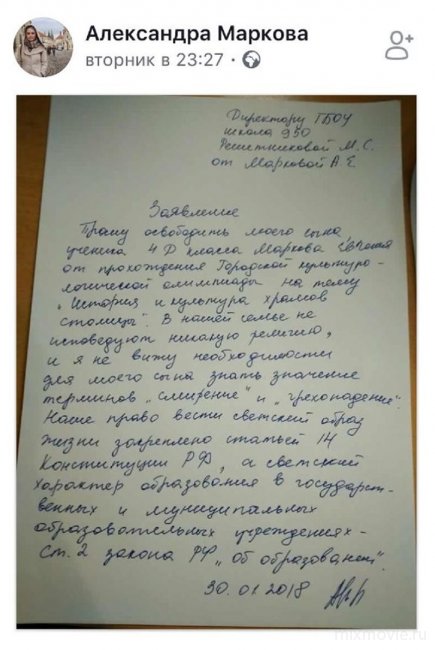 Александра Маркова
вторник в 23:27 ·
Директору ГБОУ
школа 950
Решетниковой М. С.
от Марковой А Е
Заявление
Прошу освободить моего сына
ученика 4 Ф класса Маркова Евгения
от прохождения Городской культуро-
логической олимпиады на тему
„История и культура храмов
столицы". В нашей семье не
исповедуют никакую религию,
и я не вижу необходимости
для моего сына знать значение
терминов „смирение" и „грехопадение".
Наше право вести светский образ
жизни закреплено статьей 14
Конституции РФ, а светский
характер образования в государст-
венных и муниципальных
образовательных учреждениях-
ст. 2 закона РФ „Об образовании".
30.01.2018
mixmovie.ru